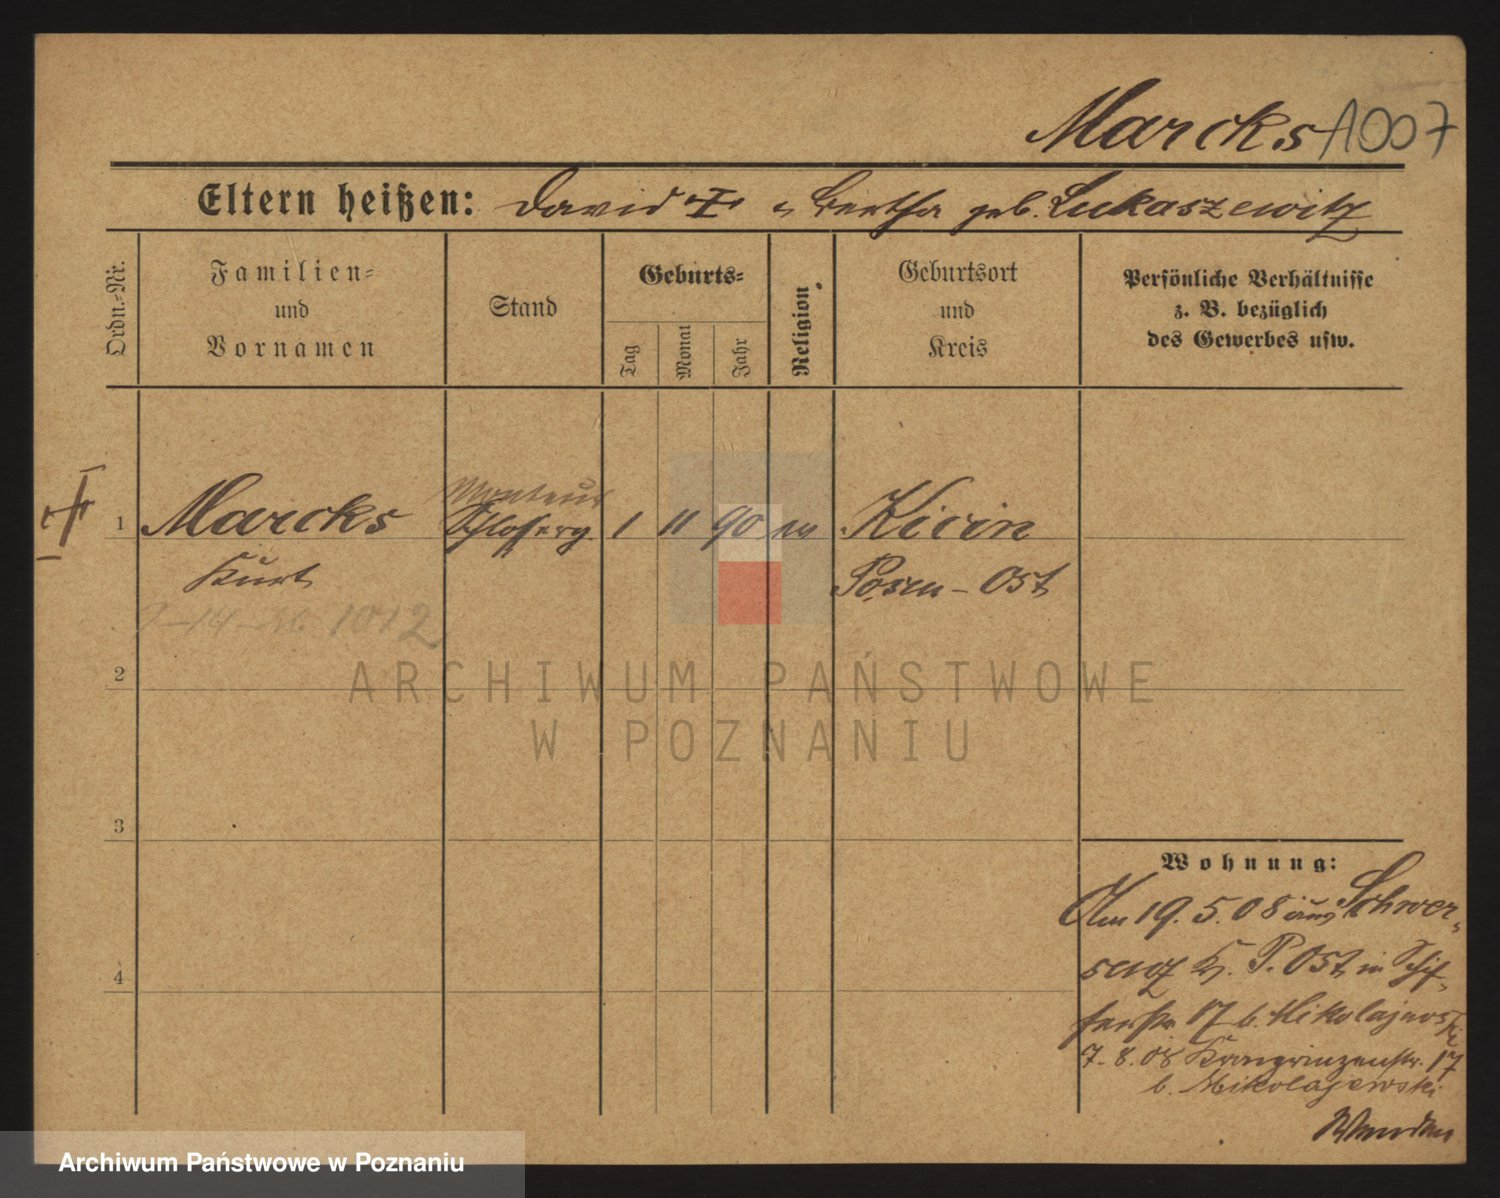 Marcks 1007
Eltern heißen: David u Bertha geb. Lukaszewitz
Ordn.-Nr.
Familien-
und
Vornamen
Stand
Geburts-
Tag
Monat
Jahr
Religion
Geburtsort
und
Kreis
Persönliche Verhältnisse
z. B. bezüglich
des Gewerbes usw.
Monteur
1 Marcks Schlosserg. 1 11 90 Kicin
Kurt Posen-Ost
9-14- 1012
2
3
4
ARCHIWUM PAŃSTWOWE
W POZNANIU
Wohnung:
Am 19.5.08 aus Schwer-
senz Kr. P. Ost in Schif-
ferstr 17 b. Mikolajewski
7.8.08 Kronprinzenstr. 17
b. Mikolajewski
Archiwum Państwowe w Poznaniu